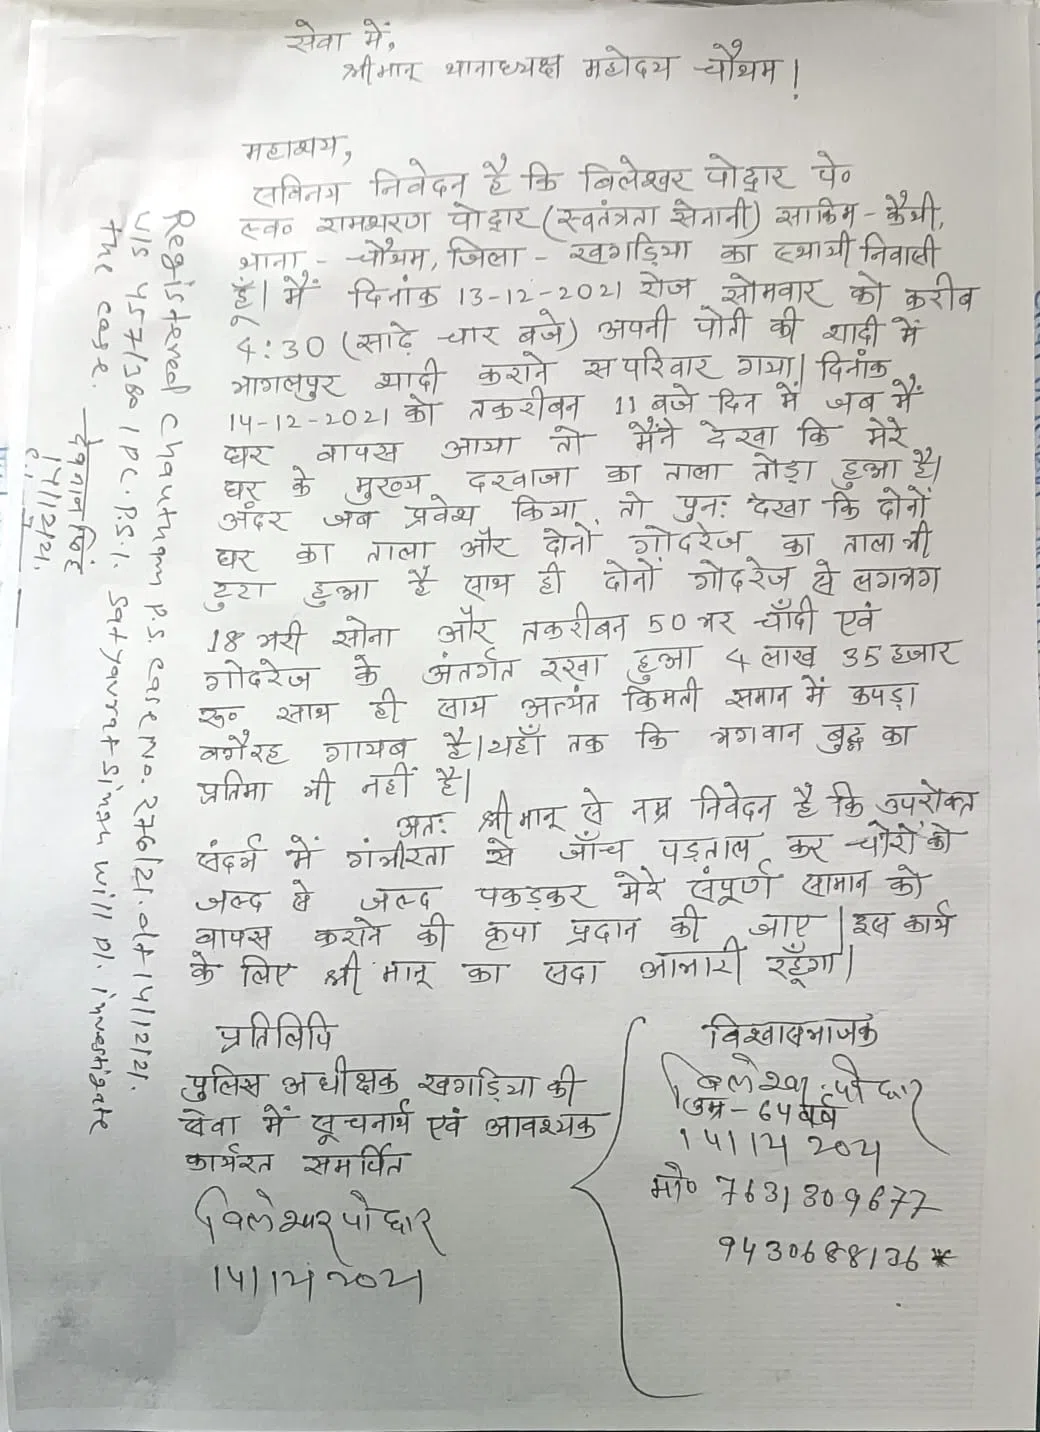 सेवा में,
श्रीमान् थानाध्यक्ष महोदय चौथम।
महाशय,
सविनय निवेदन है कि बिलेश्वर पोद्दार पे०
स्व० रामशरण पोद्दार (स्वतंत्रता सेनानी) साकिम - कैथी,
थाना - चौथम, जिला - खगड़िया का स्थायी निवासी
हूँ। मैं दिनांक 13-12-2021 रोज सोमवार को करीब
4:30 (साढ़े चार बजे) अपनी पोती की शादी में
भागलपुर शादी कराने सपरिवार गया। दिनांक
14-12-2021 को तकरीबन 11 बजे दिन में जब मैं
घर वापस आया तो मैंने देखा कि मेरे
घर के मुख्य दरवाजा का ताला तोड़ा हुआ है।
अंदर जब प्रवेश किया, तो पुनः देखा कि दोनों
घर का ताला और दोनों गोदरेज का ताला भी
टुटा हुआ है साथ ही दोनों गोदरेज से लगभग
18 भरी सोना और तकरीबन 50 भर चाँदी एवं
गोदरेज के अंतर्गत रखा हुआ 4 लाख 35 हजार
रू० साथ ही साथ अत्यंत किमती समान में कपड़ा
वगैरह गायब है। यहाँ तक कि भगवान बुद्ध का
प्रतिमा भी नहीं है।
अतः श्रीमान् से नम्र निवेदन है कि उपरोक्त
संदर्भ में गंभीरता से जाँच पड़ताल कर चोरों को
जल्द से जल्द पकड़कर मेरे संपूर्ण सामान को
वापस कराने की कृपा प्रदान की जाए। इस कार्य
के लिए श्री मान् का सदा आभारी रहूँगा।
प्रतिलिपि
पुलिस अधीक्षक खगड़िया की
सेवा में सूचनार्थ एवं आवश्यक
कार्यरत समर्पित
बिलेश्वर पोद्दार
14/12/2021
विश्वासभाजक
बिलेश्वर पोद्दार
उम्र - 64 वर्ष
14/12/2021
मो० 7631309677
9430688136
Registered Chautham P.S. Case No. 276/21. dt 14/12/21.
U/S 457/380 IPC. P.S.I. Satyavrat Singh will pl. investigate
the case.
14/12/21.